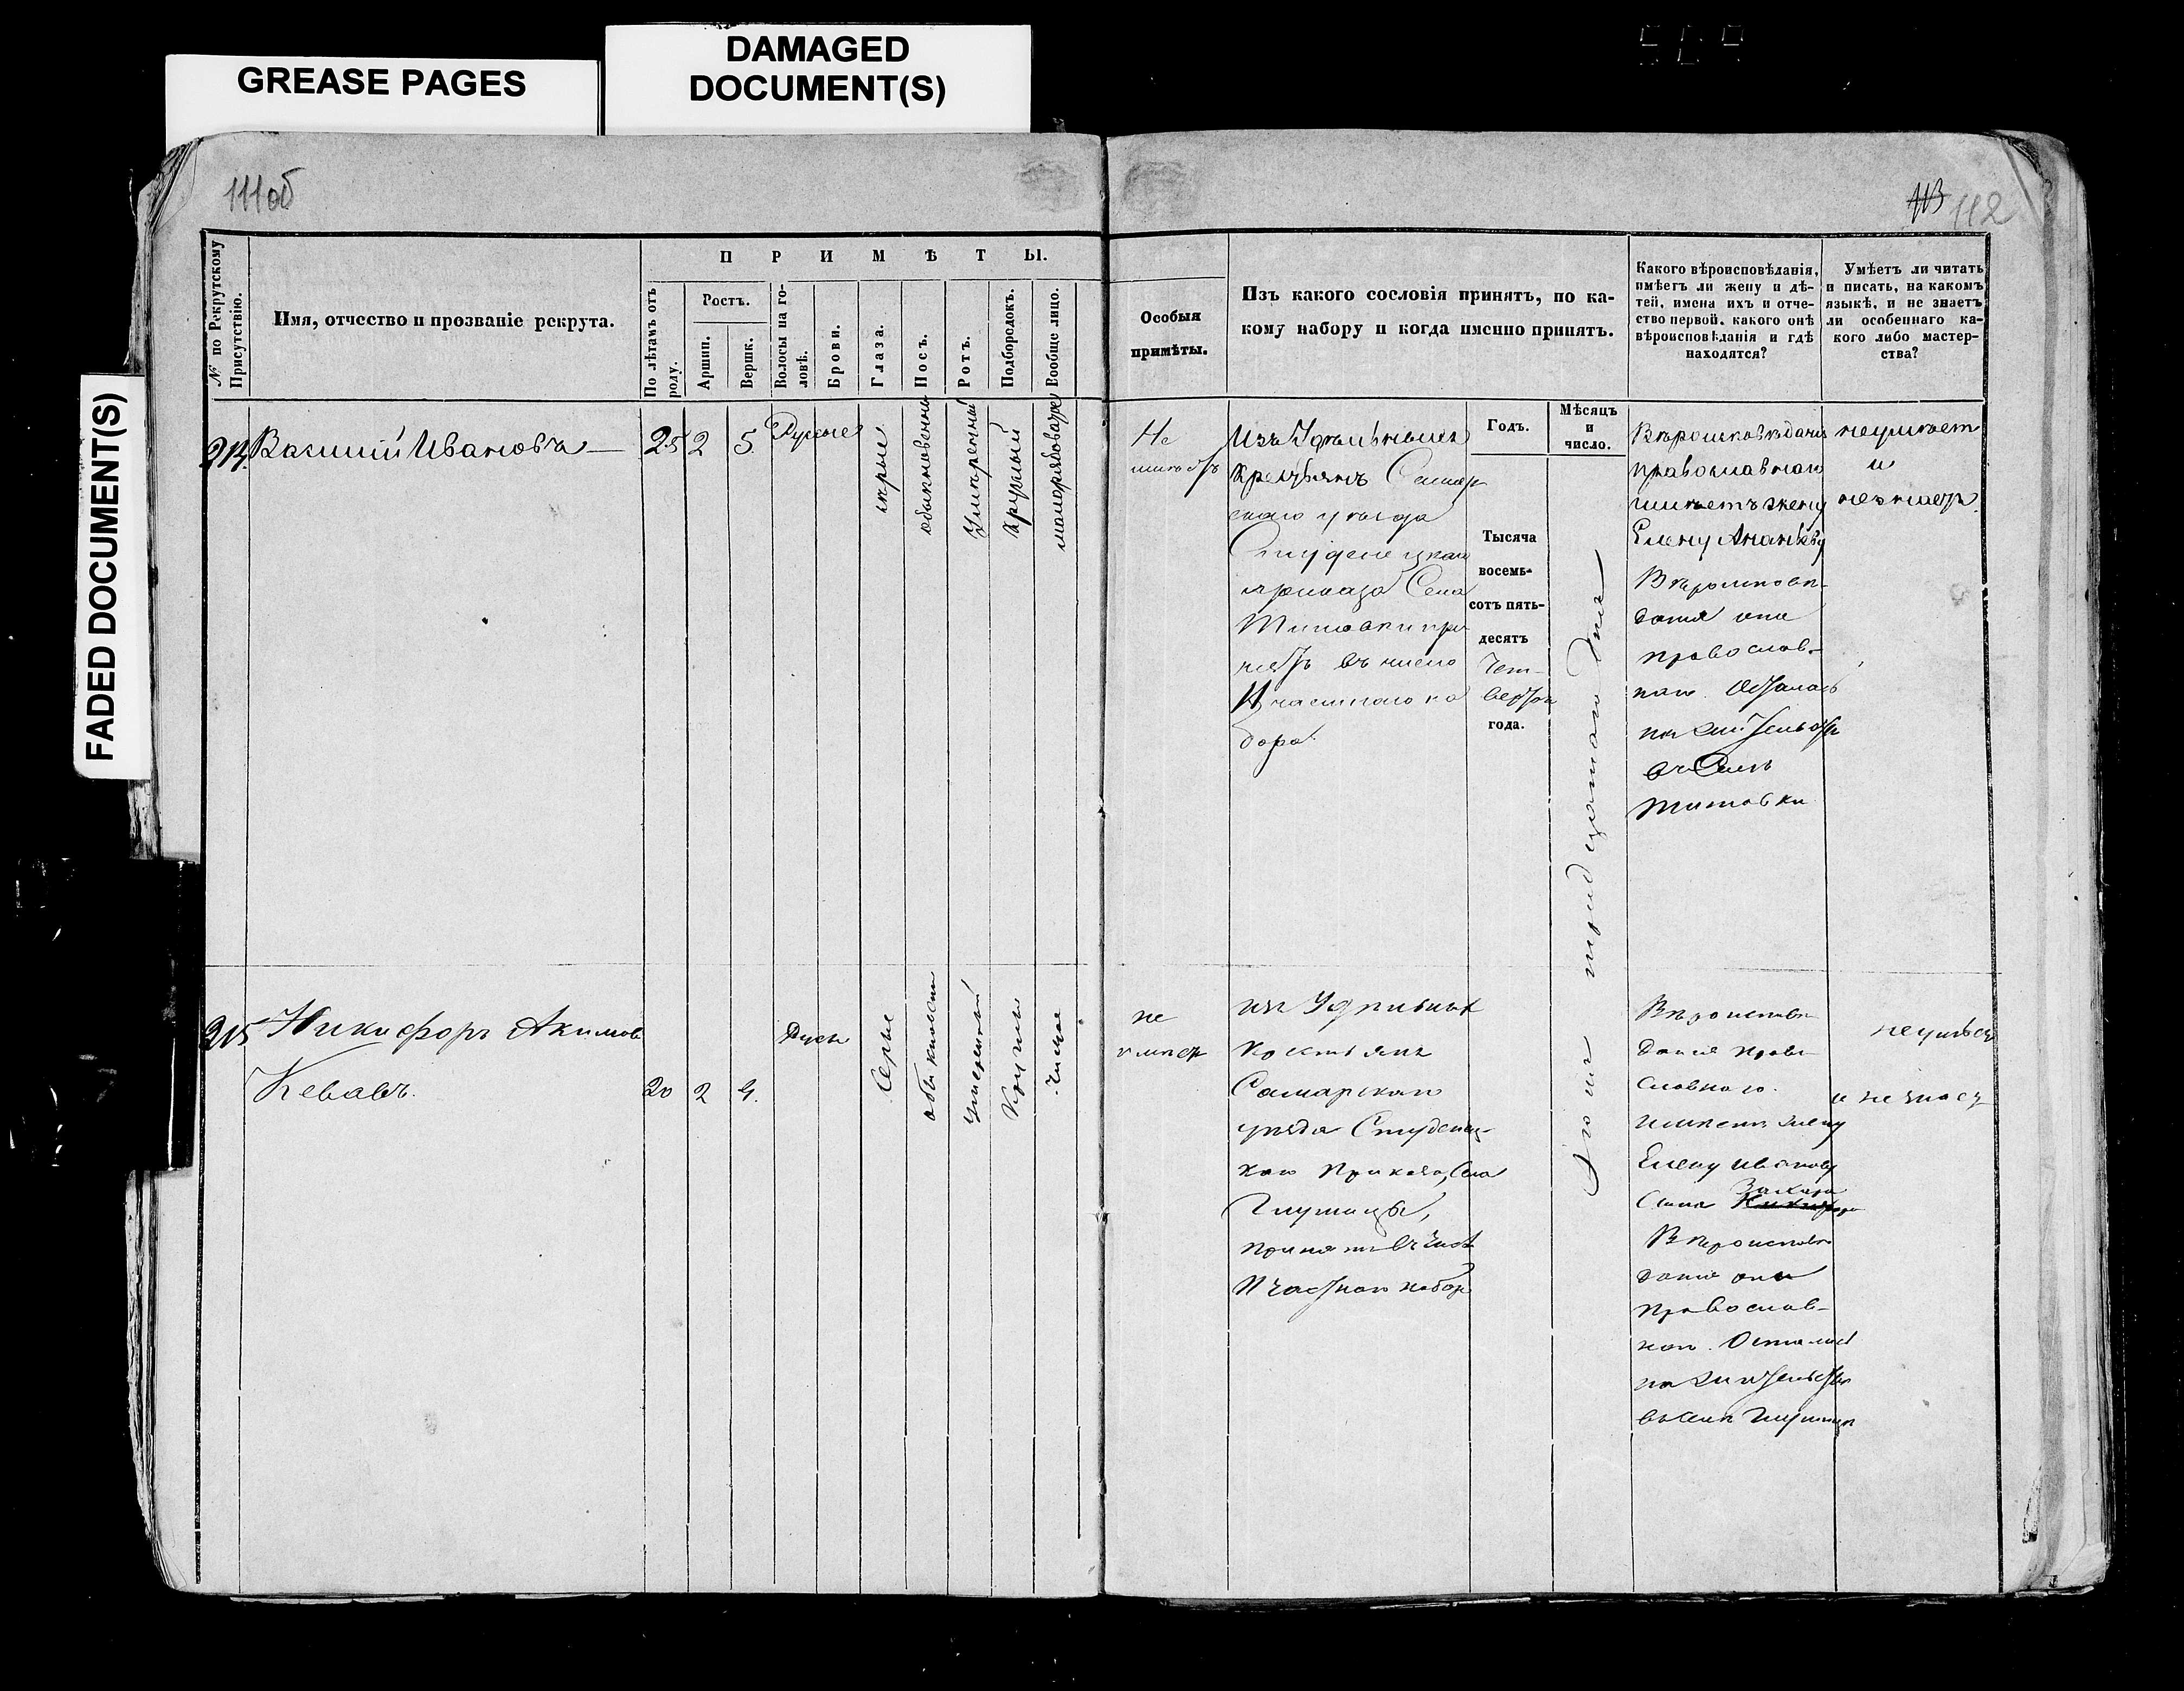 GREASE PAGES
DAMAGED
DOCUMENT(S)
FADED DOCUMENT(S)
111об
113 112
№ по Рекрутскому
Присутствію.
Имя, отчество и прозваніе рекрута.
ПРИМѢТЫ.
По лѣтамъ отъ
роду.
Ростъ.
Аршин.
Вершк.
Волосы на го-
ловѣ.
Брови.
Глаза.
Носъ.
Ротъ.
Подбородокъ.
Вообще лицо.
Особыя
примѣты.
Изъ какого сословія принятъ, по ка-
кому набору и когда именно принятъ.
Какого вѣроисповѣданія,
имѣетъ ли жену и дѣ-
тей, имена ихъ и отче-
ство первой, какого онѣ
вѣроисповѣданія и гдѣ
находятся?
Умѣетъ ли читать
и писать, на какомъ
языкѣ, и не знаетъ
ли особеннаго ка-
кого либо мастер-
ства?
Годъ.
Мѣсяцъ
и
число.
214.
Василій Ивановъ
25
2
5.
Русые
сѣрые
обыкновенный
Умѣренный
Круглый
малорябоватое
Не
имѣетъ
Изъ Удѣльныхъ
Крестьянъ Самар
скаго уѣзда
Студенецкаго
приказа Села
Титовки при
нятъ въ число
II частнаго на
бора.
Тысяча
восемь-
сотъ пять-
десятъ
Чет-
вертый
года.
Іюня тридцатаго дня
Вѣроисповѣданія
православнаго
имѣетъ жену
Елену Ананьеву
Вѣроисповѣ-
данія они
православ-
наго. Остались
на жительствѣ
въ Селѣ
Титовки
неумѣет
и
незнает.
215
Никифоръ Акимов
Кевавъ.
20
2
4.
Русы
Сѣрые
обыкновен
умѣренный
Круглы
Чистое
не
имѣет
изъ Удѣльных
Крестьянъ
Самарскаго
уѣзда Студенец-
каго Приказа, Села
Глушицы,
принятъ въ число
II частнаго набор
Вѣроисповѣ
данія право
славнаго.
имѣетъ жену
Елену Иванову
Захара
Сына
Вѣроисповѣ
данія они
Православ-
наго. Остались
на жительствѣ
въ селѣ Глушицѣ
неумѣет
и не знает